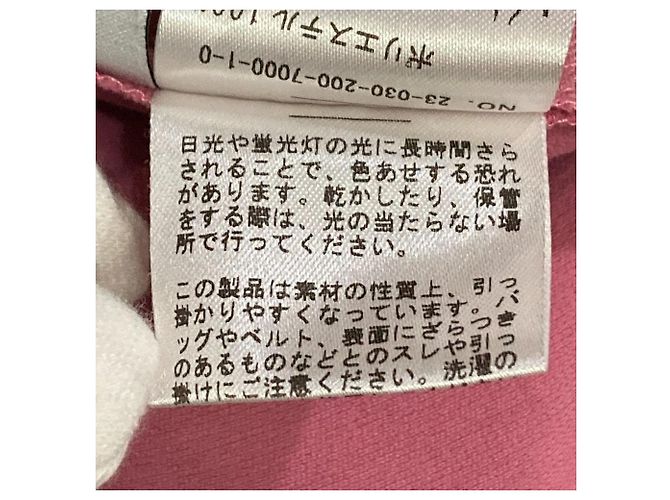 ポリエステル 100
NO. 23-030-200-7000-1-0
日光や蛍光灯の光に長時間さら
されることで、色あせする恐れ
があります。乾かしたり、保管
をする際は、光の当たらない場
所で行ってください。
この製品は素材の性質上、引っ
掛かりやすくなっています。バ
ッグやベルト、表面にざらつき
のあるものなどとのスレや引っ
掛けにご注意ください。洗濯の